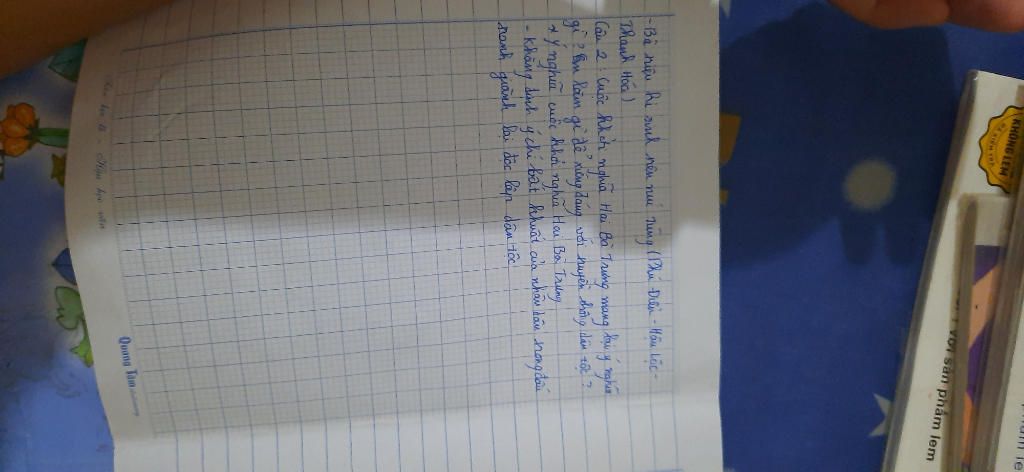 - Bà Triệu hi sinh trên núi Tùng (Phú Điền - Hậu Lộc -
Thanh Hóa)
Câu 2 Cuộc khởi nghĩa Hai Bà Trưng mang lại ý nghĩa
gì? Em làm gì để xứng đáng với truyền thống dân tộc?
* Ý nghĩa cuộc khởi nghĩa Hai Bà Trưng
- Khẳng định ý chí bất khuất của nhân dân trong đấu
tranh giành lại độc lập dân tộc
Quang Tâm
KHÔNG LEM
VỚI SẢN PHẨM LEM